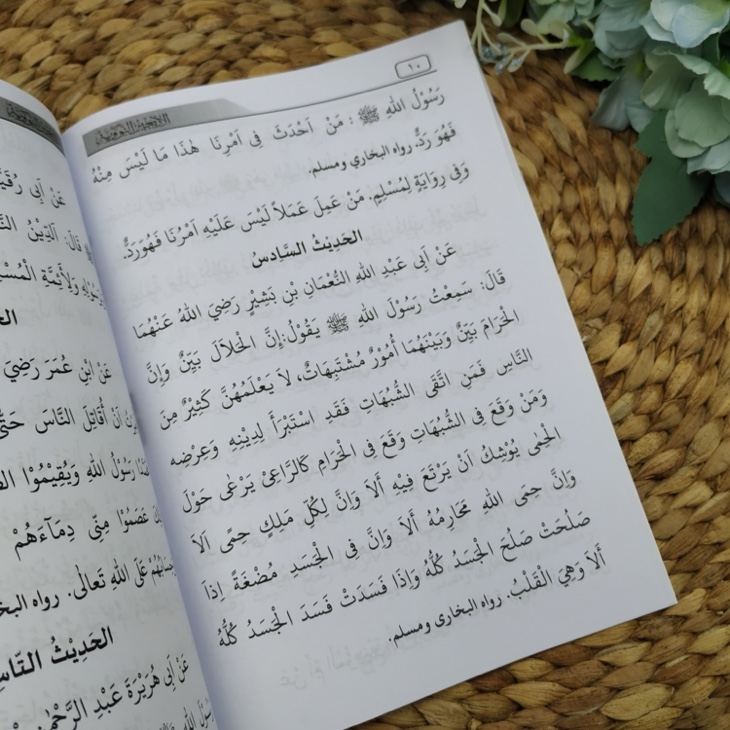 ١٠
رَسُوْلُ اللهِ ﷺ : مَنْ اَحْدَثَ فِى اَمْرِنَا هٰذَا مَا لَيْسَ مِنْهُ
فَهُوَ رَدٌّ. رواه البخارى ومسلم.
وَفِى رِوَايَةٍ لِمُسْلِمٍ. مَنْ عَمِلَ عَمَلاً لَيْسَ عَلَيْهِ اَمْرُنَا فَهُوَرَدٌّ.
الحَدِيْثُ السَّادِسُ
عَنْ اَبِى عَبْدِ اللهِ النُّعْمَانِ بْنِ بَشِيْرٍ رَضِيَ اللهُ عَنْهُمَا
قَالَ: سَمِعْتُ رَسُوْلَ اللهِ ﷺ يَقُوْلُ: إِنَّ الْحَلاَلَ بَيِّنٌ وَاِنَّ
الْحَرَامَ بَيِّنٌ وَبَيْنَهُمَا أُمُوْرٌ مُشْتَبِهَاتٌ، لاَ يَعْلَمُهُنَّ كَثِيْرٌ مِنَ
النَّاسِ فَمَنِ اتَّقَى الشُّبُهَاتِ فَقَدِ اسْتَبْرَأَ لِدِيْنِهِ وَعِرْضِه
وَمَنْ وَقَعَ فِى الشُّبُهَاتِ وَقَعَ فِى الْحَرَامِ كَالرَّاعِىْ يَرْعٰى حَوْلَ
الْحِمٰى يُوْشِكُ اَنْ يَرْتَعَ فِيْهِ اَلاَ وَاِنَّ لِكُلِّ مَلِكٍ حِمًى اَلاَ
وَاِنَّ حِمَى اللهِ مَحَارِمُهُ اَلاَ وَاِنَّ فِى الْجَسَدِ مُضْغَةً اِذَا
صَلُحَتْ صَلُحَ الْجَسَدُ كُلُّهُ وَاِذَا فَسَدَتْ فَسَدَ الْجَسَدُ كُلُّهُ
أَلاَ وَهِيَ الْقَلْبُ. رواه البخارى ومسلم.
عَنْ أَبِى
قَالَ: الَدِّيْنُ
وَلِأَئِمَّةِ
عَنْ ابْنِ عُمَرَ رَضِيَ
اَنْ اُقَاتِلَ النَّاسَ حَتّٰى
رَسُوْلُ اللهِ وَيُقِيْمُوْا
عَصَمُوْا مِنِّى دِمَآءَهُمْ
عَلَى اللهِ تَعَالٰى. رواه
الحَدِيْثُ
عَنْ اَبِى هُرَيْرَةَ عَبْدِ